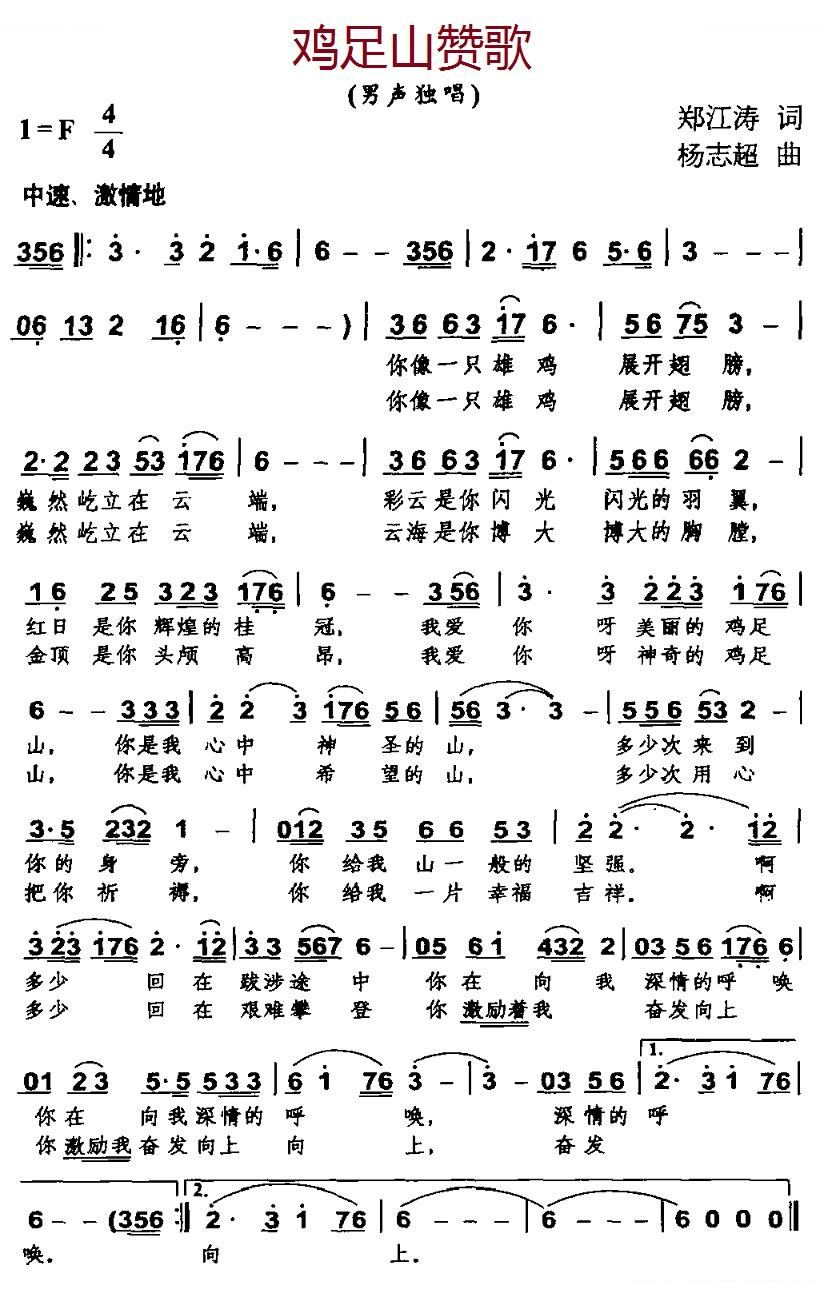 鸡足山赞歌
(男声独唱)
1=F 4/4
郑江涛 词
杨志超 曲
中速、激情地
356 ‖: 3· 3 2 1·6 | 6 - - 356 | 2· 17 6 5·6 | 3 - - - |
06 13 2 16 | 6 - - - ) | 36 63 17 6· | 56 75 3 - |
你像一只雄鸡 展开翅膀,
你像一只雄鸡 展开翅膀,
2·2 23 53 176 | 6 - - - | 36 63 17 6· | 566 66 2 - |
巍然屹立在云端, 彩云是你闪光 闪光的羽翼,
巍然屹立在云端, 云海是你博大 博大的胸膛,
16 25 323 176 | 6 - - 356 | 3· 3 223 176 |
红日是你辉煌的桂冠, 我爱你呀美丽的鸡足
金顶是你头颅高昂, 我爱你呀神奇的鸡足
6 - - 333 | 2 2 3 176 56 | 56 3· 3 - | 556 53 2 - |
山, 你是我心中神圣的山, 多少次来到
山, 你是我心中希望的山, 多少次用心
3·5 232 1 - | 012 35 66 53 | 2 2· 2· 12 |
你的身旁, 你给我山一般的坚强. 啊
把你祈祷, 你给我一片幸福吉祥. 啊
3 23 176 2· 12 | 33 567 6 - | 05 61 432 2 | 03 56 176 6 |
多少回在跋涉途中 你在向我深情的呼唤
多少回在艰难攀登 你激励着我 奋发向上
01 23 5·5 533 | 6 1 76 3 - | 3 - 03 56 | 1. 2· 3 1 76 |
你在向我深情的呼唤, 深情的呼
你激励我奋发向上向上, 奋发
6 - - (356 :‖ 2. 2· 3 1 76 | 6 - - - | 6 - - - | 6 0 0 0 ‖
唤. 向上.